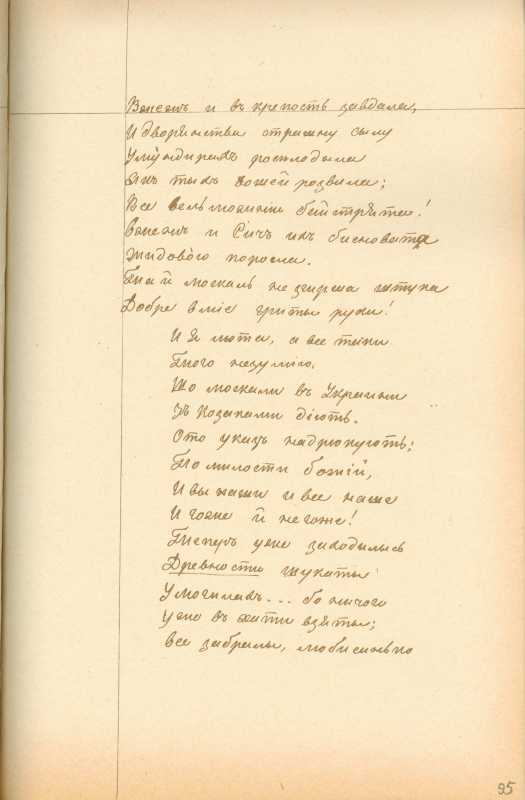 Вонсомъ и въ крепость завдала,
И дворянства страшну сылу
У мундирахъ росплодыла
Якъ тыхъ вошей розвила;
Все вельможнии байстрята!
Вонсомъ и Сичъ ихъ бисновата
Жидовою поросла.
Та й москаль не згирша штука
Добре вміє гриты руки!
И я люта, а все таки
Того незумію,
Що москали въ Украини
Зъ Козаками діють.
Ото указъ надрюкують:
По милости божій,
И вы наши и все наше
И гоже й негоже!
Теперъ уже заходылысь
Древности шукаты
У могилахъ... бо ничого
Уже въ хати взяты;
Все забралы, любисинько
95